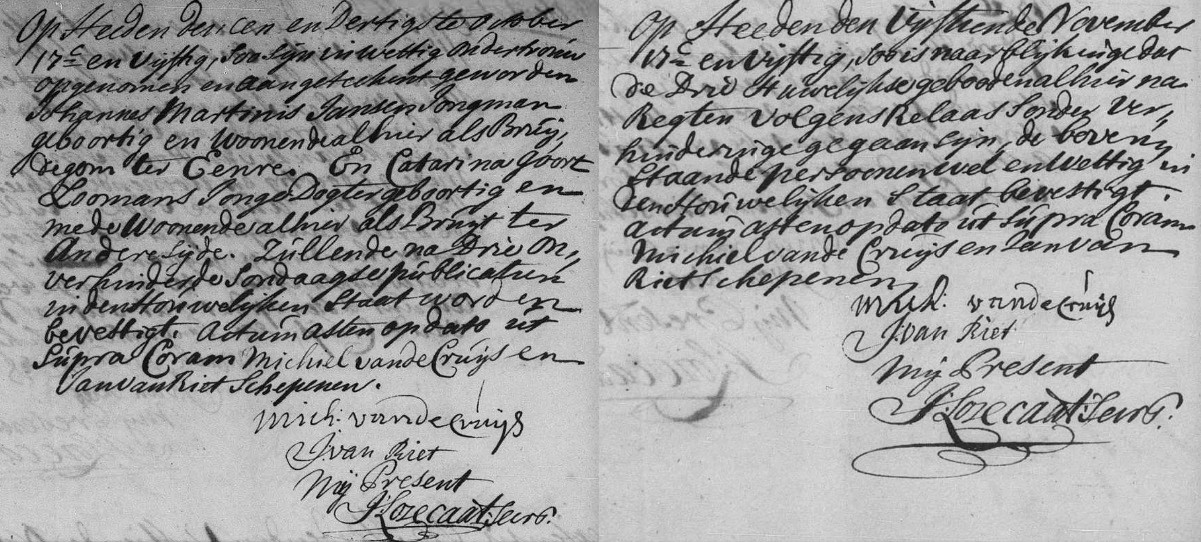 Op Heeden den een en Dertigste october
17c en Vijftig, soo sijn in wettig ondertrouw
opgenomen en aangetechent geworden
Johannes Martinis Jansen Jongman
geboortig en Woonende alhier als Bruij,
degom ter Eenre. En Catarina Joost
Loomans Jonge Dogter geboortig en
mede Woonende alhier als Bruijt ter
Andere sijde. Zullende na Drie on,
verhinderde Sondaagse publicatien
in den Houwelijken Staat worden
bevestigt. Actum Asten op dato ut
Supra Coram Michiel vande Cruijs en
Jan van Riet Schepenen.
Mich: vande Cruijs
J van Riet
Mij Present
J: Losecaat: Secrs.
Op Heeden den Vijftiende November
17c en Vijftig, soo is naar blijkinge dat
de Drie Huwelijkse geboden alhier na
Regten volgens Relaas sonder Ver,
hinderinge gegaan sijn, de boven,
staande persoonen wel en Wettig in
den Houwelijken Staat bevestigt
actum asten op dato ut Supra Coram
Michiel vande Cruijs en Jan van
Riet Schepenen
Mich: vande Cruijs
J van Riet
Mij Present
J: Losecaat: Secrs.